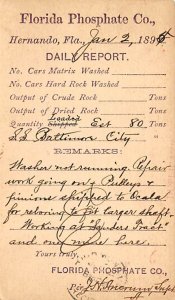 Florida Phosphate Co.,
Hernando, Fla., Jan 2, 1895
DAILY REPORT.
No. Cars Matrix Washed
No. Cars Hard Rock Washed
Output of Crude Rock Tons
Output of Dried Rock Tons
Loaded
Quantity Shipped Est 80 Tons
SS Baltimore City
REMARKS:
Washer not running. Repair
work going on & Pulleys &
pinions shipped to Ocala
for reboring to fit larger shaft.
Working at "Snyders Tract"
and one mine here.
Yours truly,
FLORIDA PHOSPHATE CO.,
Per Supt